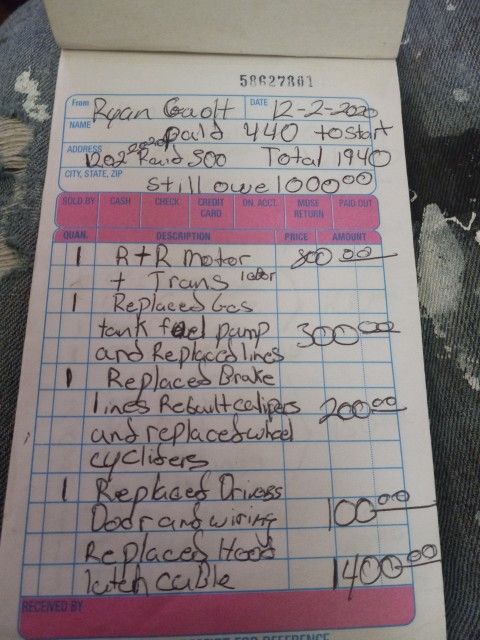 58627801
From Ryan Gaolt DATE 12-2-2020
NAME paid 440 to start
ADDRESS Paid 500 Total 1940
CITY, STATE, ZIP still owe 1000 00
SOLD BY CASH CHECK CREDIT CARD ON. ACCT. MDSE RETURN PAID OUT
QUAN. DESCRIPTION PRICE AMOUNT
1 R+R motor 800 00
+ Trans labor
1 Replaced Gas
tank fuel pump 300 00
and Replaced lines
1 Replaced Brake
lines Rebuilt calipers 200 00
and replaced wheel
cycliders
1 Replaced Drivers
Door and wiring 100 00
Replaced Hood
latch cable 1400 00
RECEIVED BY
FOR REFERENCE